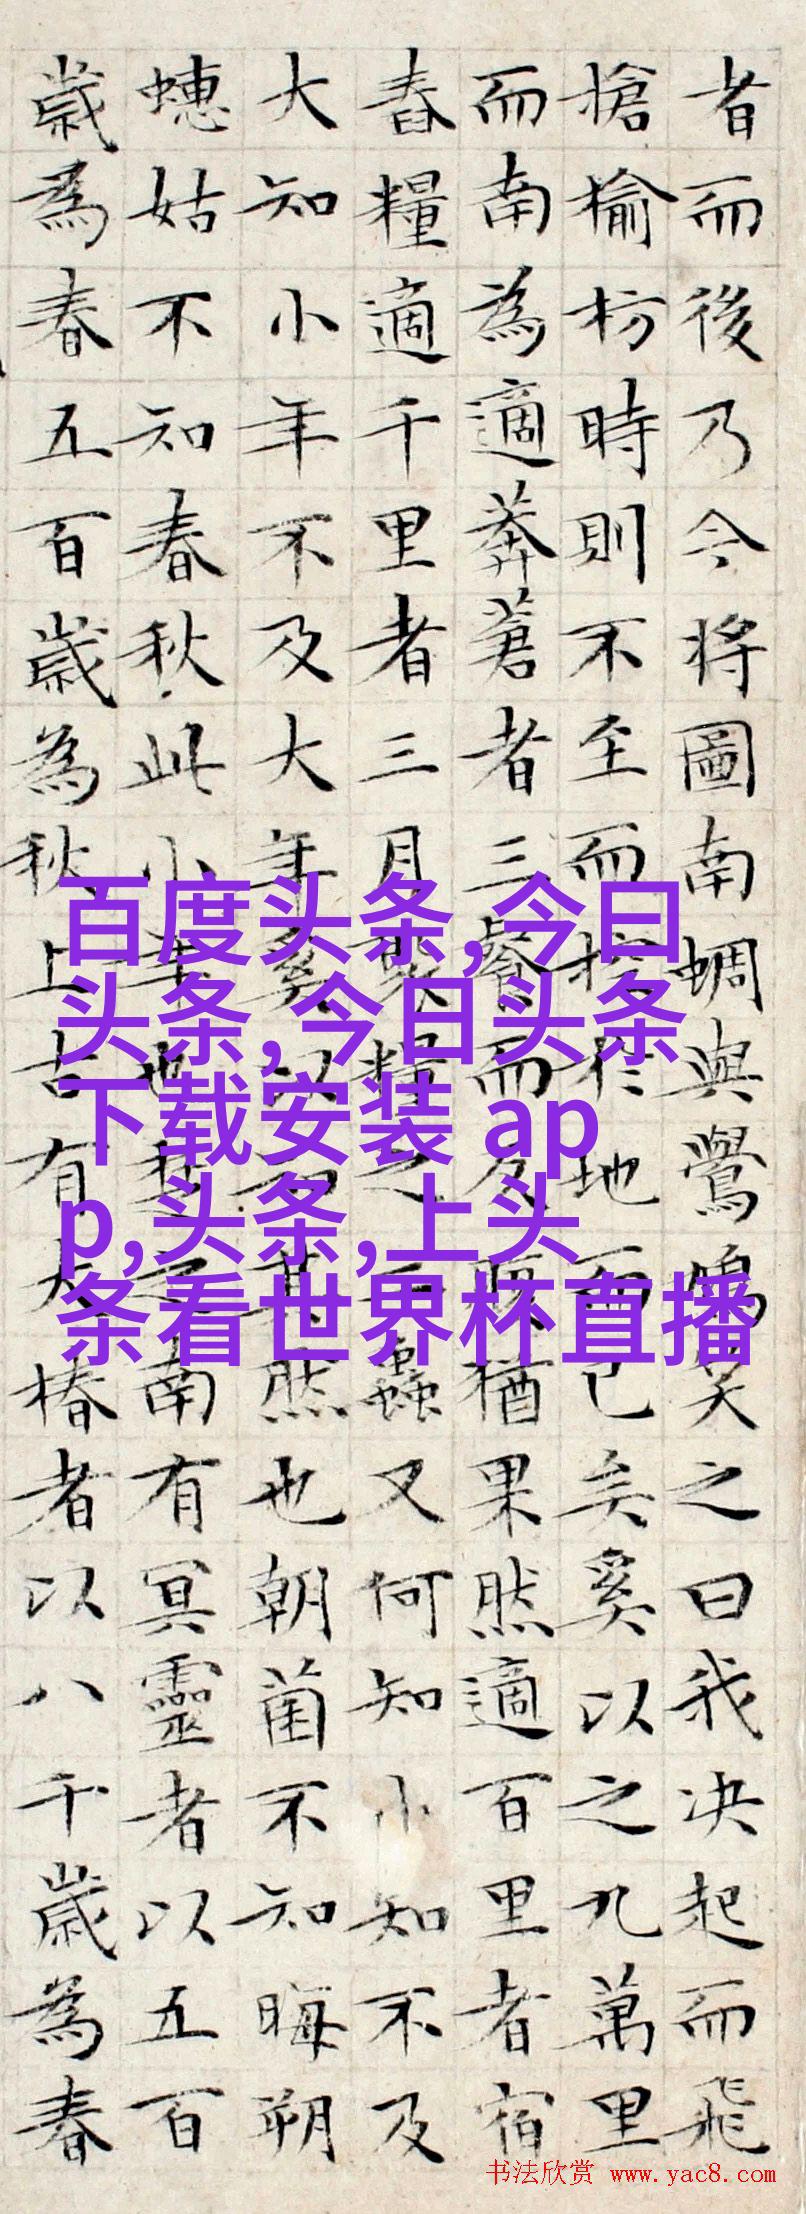 者而後乃今将圖南蜩與鷽鳩笑之曰我决起而飛
搶榆枋時則不至而控於地而已矣奚以之九萬里
而南為適莽蒼者三餐而反腹猶果然適百里者宿
舂糧適千里者三月聚糧之二蟲又何知小知不及
大知小年不及大年奚以知其然也朝菌不知晦朔
蟪姑不知春秋此小年也楚之南有冥靈者以五百
歲為春五百歲為秋上古有大椿者以八千歲為春
百度头条,今曰
头条,今日头条
下载安装 ap
p,头条,上头
条看世界杯直播
书法欣赏 www.yac8.com